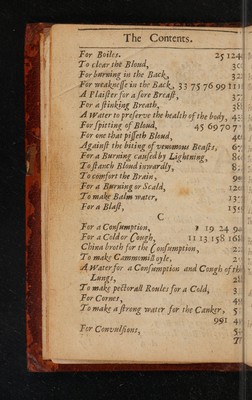 The Contents.
For Boiles. 25 124
To clear the Bloud, 30
For burning in the Back, 32
For weaknesse in the Back, 33 75 76 99 111
A Plaister for a sore Breast, 37
For a stinking Breath, 38
A Water to preserve the health of the body, 43
For spitting of Bloud, 45 69 70 7
For one that pisseth Bloud, 46
Against the biting of venomous Beasts, 67
For a Burning caused by Lightning, 80
To stanch Bloud inwardly, 82
To comfort the Brain, 9
For a Burning or Scald, 120
To make Balm water, 137
For a Blast, 15
C
For a Consumption, 19 24 9
For a Cold or Cough, 11 13 158 16
China broth for the Consumption, 2
To make Cammomill oyle, 2
A Water for a Consumption and Cough of the
Lungs, 28
To make pectorall Roules for a Cold, 3
For Cornes, 4
To make a strong water for the Canker, 5
991 4
For Convulsions, 5